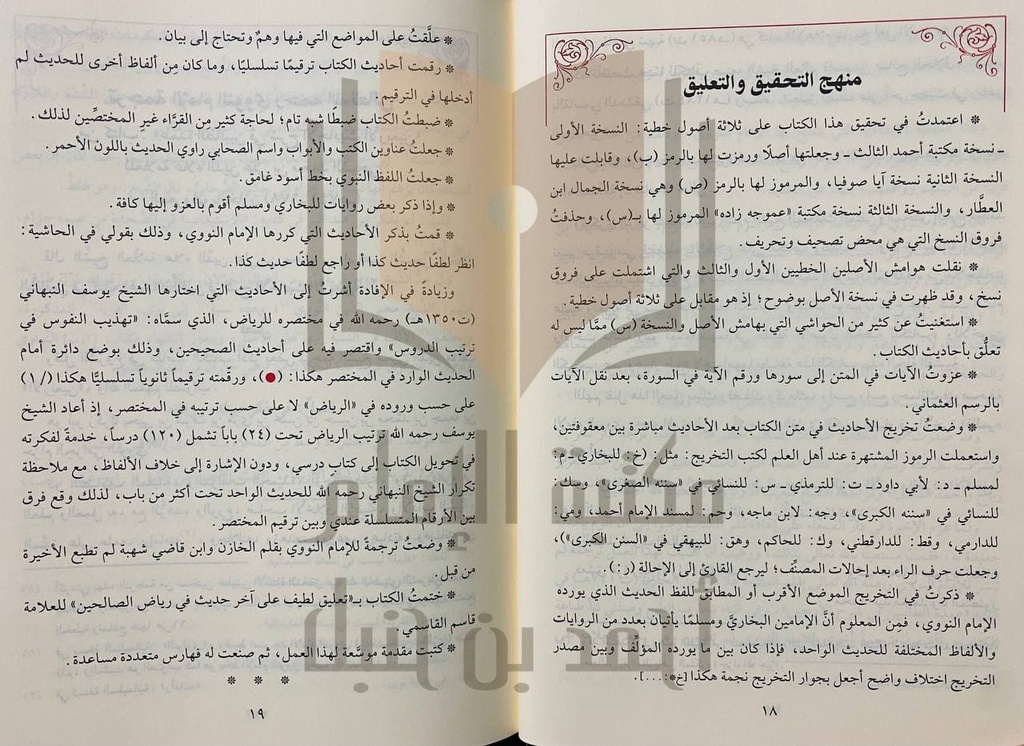 منهج التحقيق والتعليق
* اعتمدتُ في تحقيق هذا الكتاب على ثلاثة أصول خطية: النسخة الأولى
ـ نسخة مكتبة أحمد الثالث ـ وجعلتها أصلًا ورمزت لها بالرمز (ب)، وقابلت عليها
النسخة الثانية نسخة آيا صوفيا، والمرموز لها بالرمز (ص) وهي نسخة الجمال ابن
العطَّار، والنسخة الثالثة نسخة مكتبة «عموجه زاده» المرموز لها بـ(س)، وحذفتُ
فروق النسخ التي هي محض تصحيف وتحريف.
* نقلت هوامش الأصلين الخطيين الأول والثالث والتي اشتملت على فروق
نسخ، وقد ظهرت في نسخة الأصل بوضوح؛ إذ هو مقابل على ثلاثة أصول خطية.
* استغنيتُ عن كثير من الحواشي التي بهامش الأصل والنسخة (س) ممَّا ليس له
تعلُّق بأحاديث الكتاب.
* عزوتُ الآيات في المتن إلى سورها ورقم الآية في السورة، بعد نقل الآيات
بالرسم العثماني.
* وضعتُ تخريج الأحاديث في متن الكتاب بعد الأحاديث مباشرة بين معقوفتين،
واستعملت الرموز المشتهرة عند أهل العلم لكتب التخريج: مثل: (خ: للبخاري ـ م:
لمسلم ـ د: لأبي داود ـ ت: للترمذي ـ س: للنسائي في «سننه الصغرى»، وسك:
للنسائي في «سننه الكبرى»، وجه: لابن ماجه، وحم: لمسند الإمام أحمد، ومي:
للدارمي، وقط: للدارقطني، وك: للحاكم، وهق: للبيهقي في «السنن الكبرى»)،
وجعلت حرف الراء بعد إحالات المصنِّف؛ ليرجع القارئ إلى الإحالة (ر:).
* ذكرتُ في التخريج الموضع الأقرب أو المطابق للفظ الحديث الذي يورده
الإمام النووي، فمِن المعلوم أنَّ الإمامين البخاريَّ ومسلمًا يأتيان بعدد من الروايات
والألفاظ المختلفة للحديث الواحد، فإذا كان بين ما يورده المؤلِّف وبين مصدر
التخريج اختلاف واضح أجعل بجوار التخريج نجمة هكذا [خ*: ...].
١٨
* علَّقتُ على المواضع التي فيها وهمٌ وتحتاج إلى بيان.
* رقمت أحاديث الكتاب ترقيمًا تسلسليًا، وما كان مِن ألفاظ أخرى للحديث لم
أدخلها في الترقيم.
* ضبطتُ الكتاب ضبطًا شبه تام؛ لحاجة كثير مِن القرَّاء غيرِ المختصِّين لذلك.
* جعلتُ عناوين الكتب والأبواب واسم الصحابي راوي الحديث باللون الأحمر.
* جعلتُ اللفظ النبوي بخط أسود غامق.
* وإذا ذكر بعض روايات للبخاري ومسلم أقوم بالعزو إليها كافة.
* قمتُ بذكر الأحاديث التي كررها الإمام النووي، وذلك بقولي في الحاشية:
انظر لطفًا حديث كذا أو راجع لطفًا حديث كذا.
وزيادةً في الإفادة أشرتُ إلى الأحاديث التي اختارها الشيخ يوسف النبهاني
(ت١٣٥٠هـ) رحمه الله في مختصره للرياض، الذي سمَّاه: «تهذيب النفوس في
ترتيب الدروس» واقتصر فيه على أحاديث الصحيحين، وذلك بوضع دائرة أمام
الحديث الوارد في المختصر هكذا: (●)، ورقّمته ترقيماً ثانوياً تسلسليًّا هكذا (/١)
على حسب وروده في «الرياض» لا على حسب ترتيبه في المختصر، إذ أعاد الشيخ
يوسف رحمه الله ترتيب الرياض تحت (٢٤) باباً تشمل (١٢٠) درساً، خدمةً لفكرته
في تحويل الكتاب إلى كتابٍ درسي، ودون الإشارة إلى خلاف الألفاظ، مع ملاحظة
تكرار الشيخ النبهاني رحمه الله للحديث الواحد تحت أكثر من باب، لذلك وقع فرق
بين الأرقام المتسلسلة عندي وبين ترقيم المختصر.
* وضعتُ ترجمةً للإمام النووي بقلم الخازن وابن قاضي شهبة لم تطبع الأخيرة
من قبل.
* ختمتُ الكتاب بـ«تعليق لطيف على آخر حديث في رياض الصالحين» للعلامة
قاسم القاسمي.
* كتبت مقدمة موسَّعة لهذا العمل، ثم صنعت له فهارس متعددة مساعدة.
* * *
١٩
أحمد بن حنبل